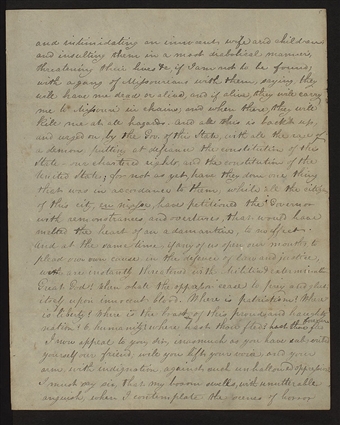 and intimidating an innocent wife and children
and insulting them in a most diabolical manner
threatening their lives &c if I am not to be found,
with a gang of Missourians with them, saying, they
will have me dead or alive, and if alive, they will carry
me to Missouri in chains, and when there, they will
kill me at all hazards. And all this is backed up,
and urged on by the Gov of this State, with all the rage of
a demon; putting at defiance the constitution of this
State our chartered rights and the constitution of the
United States; for not as yet have they done one thing
that was in accordance to them, while all the citizens
of this city, en masse, have petitioned the Governor
with remonstrances and overtures, that would have
melted the heart of an adamantine, to no effect.
And at the same time if any of us open our mouths to
plead our own cause in the defence of law and justice,
we are instantly threatened with Militia & extermination
Great God! when shall the oppressor cease to prey and glut
itself upon innocent blood. Where is patriotism? Where
is liberty? Where is the boast of this proud and haughty
nation? O humanity! where hast thou fled? hast thou fled forever
I now appeal to you, Sir, inasmuch as you have subscribed
yourself our friend, will you lift your voice and your
arm, with indignation against such unhallowed oppression
I must say, sir, that my bosom swells, with unutterable
anguish, when I contemplate the scenes of horror